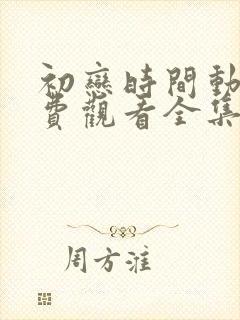 初戀時間動
費觀看全集
周方淮